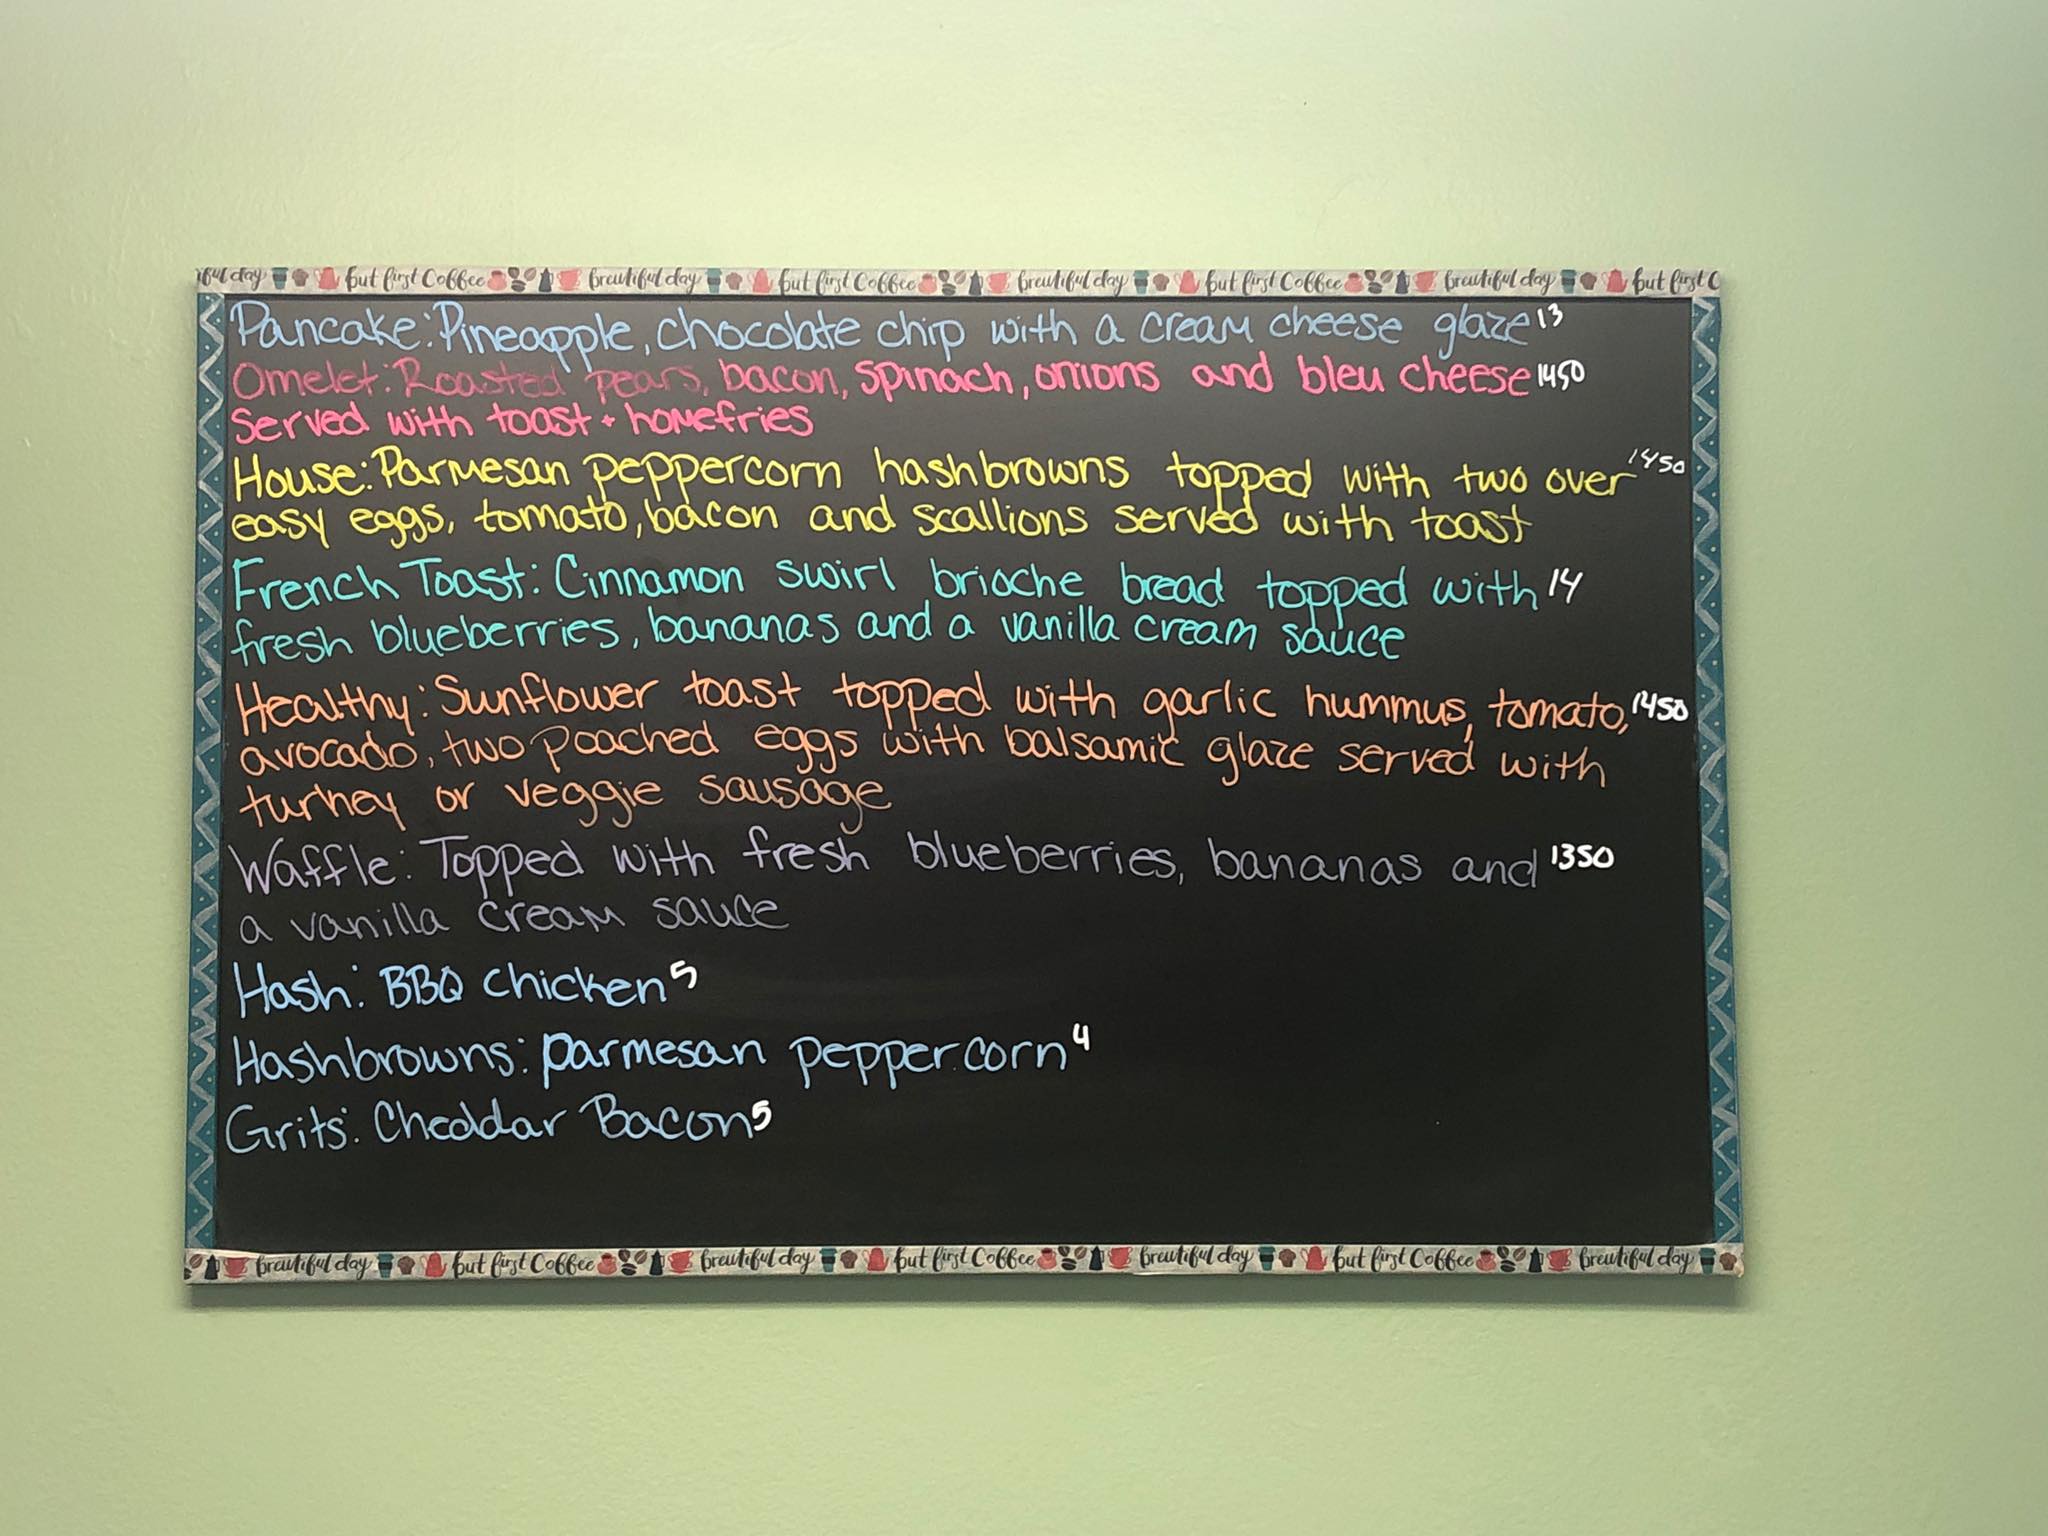 iful day but first Coffee breutiful day but first Coffee breutiful day but first Coffee breutiful day but first C
Pancake: Pineapple, chocolate chip with a cream cheese glaze 13
Omelet: Roasted pears, bacon, spinach, onions and bleu cheese 1450
served with toast + homefries
House: Parmesan peppercorn hashbrowns topped with two over 1450
easy eggs, tomato, bacon and scallions served with toast
French Toast: Cinnamon swirl brioche bread topped with 14
fresh blueberries, bananas and a vanilla cream sauce
Healthy: Sunflower toast topped with garlic hummus, tomato, 1450
avocado, two poached eggs with balsamic glaze served with
turkey or veggie sausage
Waffle: Topped with fresh blueberries, bananas and 1350
a vanilla cream sauce
Hash: BBQ chicken 5
Hashbrowns: parmesan peppercorn 4
Grits: Cheddar Bacon 5
breutiful day but first Coffee breutiful day but first Coffee breutiful day but first Coffee breutiful day